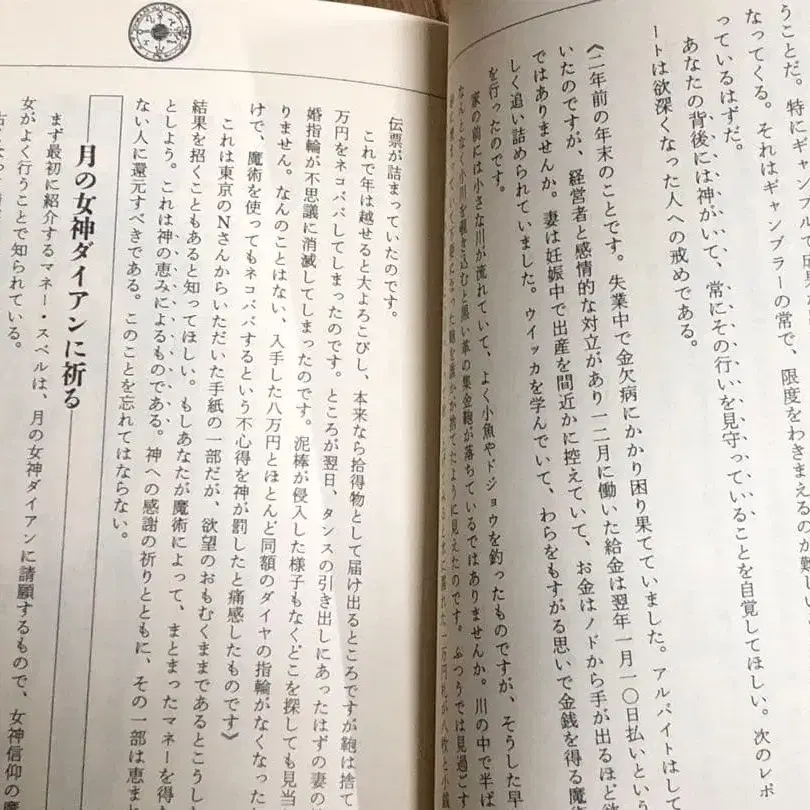 うことだ。特にギャンブルで
なってくる。それはギャンブラーの常で、限度をわきまえるのが難し
っているはずだ。
あなたの背後には神がいて、常にその行いを見守っていることを自覚してほしい。次のレポ
ートは欲深くなった人への戒めである。
《二年前の年末のことです。失業中で金欠病にかかり困り果てていました。アルバイトはして
いたのですが、経営者と感情的な対立があり一二月に働いた給金は翌年一月一〇日払いという
ではありませんか。妻は妊娠中で出産を間近かに控えていて、お金はノドから手が出るほど欲
しく追い詰められていました。ウイッカを学んでいて、わらをもすがる思いで金銭を得る魔
を行ったのです。
家の前には小さな川が流れていて、よく小魚やドジョウを釣ったものですが、そうした早
なんとなく小川を覗き込むと黒い革の集金鞄が落ちているではありませんか。川の中で半ば
伝票が詰まっていたのです。
これで年は越せると大よろこびし、本来なら拾得物として届け出るところですが鞄は捨て
万円をネコババしてしまったのです。ところが翌日、タンスの引き出しにあったはずの妻の
婚指輪が不思議に消滅してしまったのです。泥棒が侵入した様子もなくどこを探しても見当
りません。なんのことはない、入手した八万円とほとんど同額のダイヤの指輪がなくなった
けで、魔術を使ってもネコババするという不心得を神が罰したと痛感したものです》
これは東京のNさんからいただいた手紙の一部だが、欲望のおもむくままであるとこうし
結果を招くこともあると知ってほしい。もしあなたが魔術によって、まとまったマネーを得た
としよう。これは神の恵みによるものである。神への感謝の祈りとともに、その一部は恵まれ
ない人に還元すべきである。このことを忘れてはならない。
月の女神ダイアンに祈る
まず最初に紹介するマネー・スペルは、月の女神ダイアンに請願するもので、女神信仰の魔
女がよく行うことで知られている。